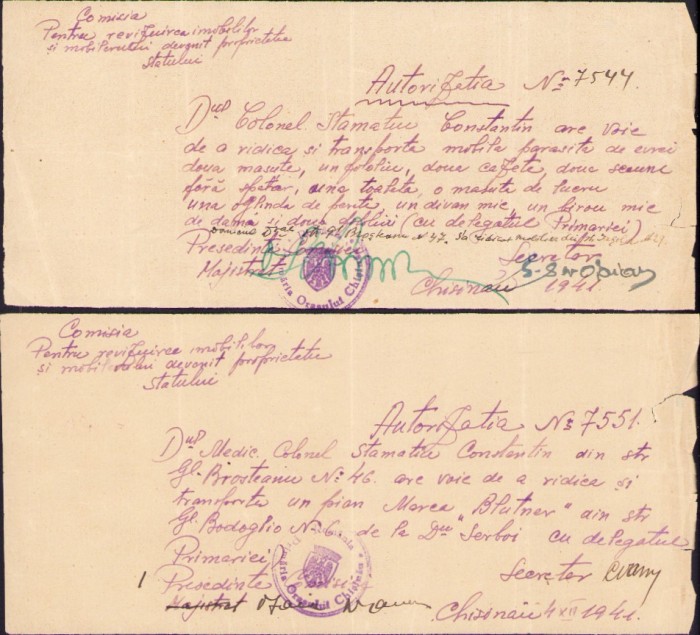 Comisia
Pentru revizuirea imobilelor
și mobilerului devenit proprietatea
Statului
Autorizatia Nº 7544.
Dnul Colonel Stamatiu Constantin are voie
de a ridica și transporta mobila parasita de evrei
doua masute, un fotoliu, doua cafete, doua scaune
fără spatar, una toaleta, o masuta de lucru
una oglinda de perete, un divan mic, un birou mic
de damă și doua fotolii (cu delegatul Primariei)
Broșteanu Nº 47. Sa ridicat mobilier din
Presedintele Comisiei
Magistrat
Secretar
Primăria Orașului Chișinău
Chisinau 1941
Comisia
Pentru revizuirea imobilelor
și mobilerului devenit proprietatea
Statului
Autorizatia Nº 7551.
Dnul Medic. Colonel Stamatiu Constantin din str
Gl. Brosteanu Nº 46. are voie de a ridica și
transporta un pian Marca "Blutner" din str
Gl. Badoglio Nº 6 de la Dnu "Serboi cu delegatul
Primariei
Presedinte Comisiei
Magistrat
Secretar
Primăria Orașului Chișinău
Chisinau 4 XII 1941.